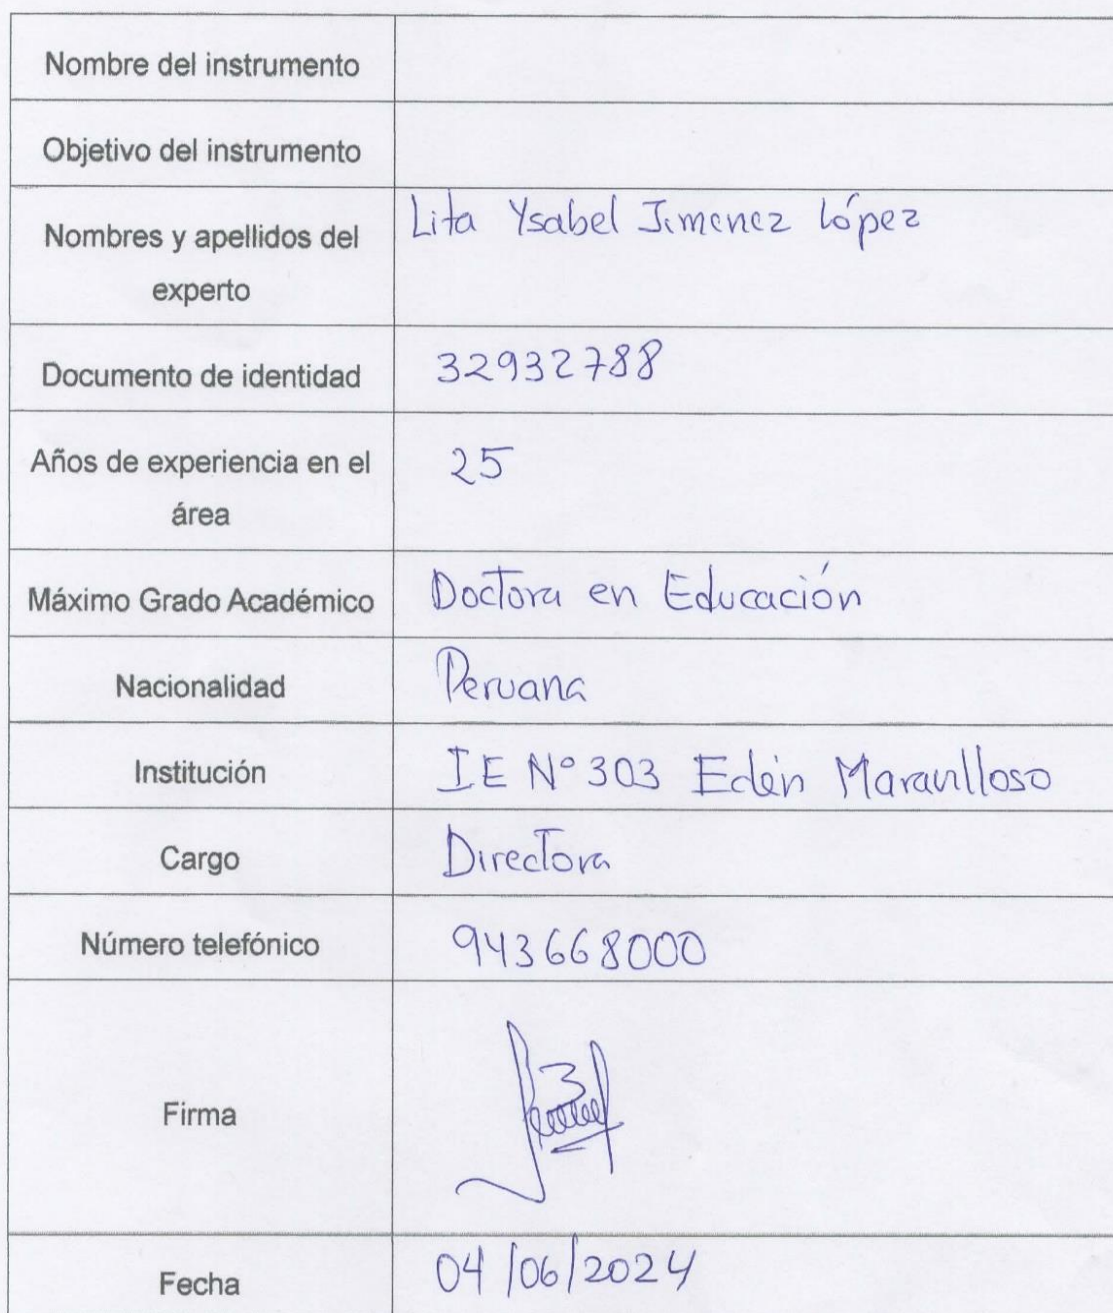 Nombre del instrumento
Objetivo del instrumento
Nombres y apellidos del
experto
Lita Ysabel Jimenez López
Documento de identidad
32932788
Años de experiencia en el
área
25
Máximo Grado Académico
Doctora en Educación
Nacionalidad
Peruana
Institución
IE N° 303 Edén Maravilloso
Cargo
Directora
Número telefónico
943668000
Firma
Fecha
04/06/2024